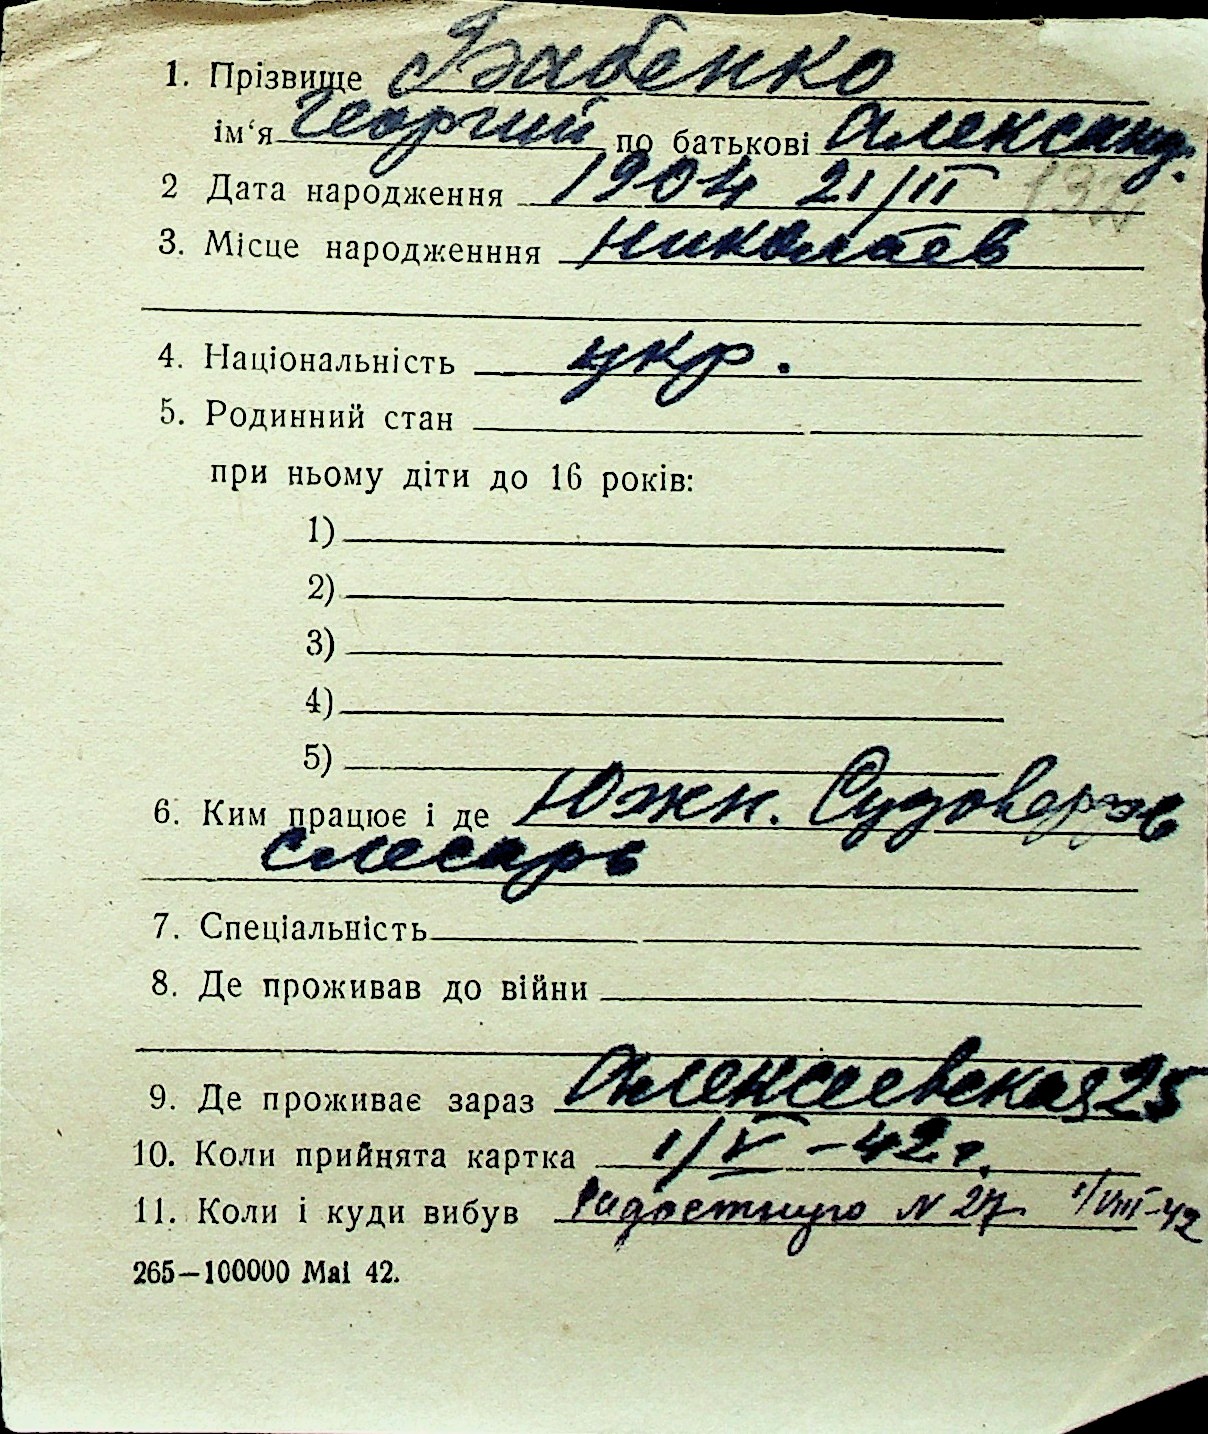 1. Прізвище Бабенко
ім‘я Георгий по батькові Александ.
2 Дата народження 1904 21/II
132
3. Місце народженння Николаев
4. Національність укр.
5. Родинний стан
при ньому діти до 16 років:
1)
2)
3)
4)
5)
6. Ким працює і де Южн. Судоверфь
слесарь
7. Спеціальність
8. Де проживав до війни
9. Де проживає зараз Алексеевская 25
10. Коли прийнята картка 1/V – 42 г.
11. Коли і куди вибув Радостную N 27 1/VIII-42
265—100000 Mai 42.